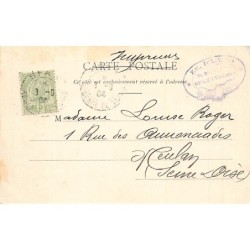 Imprimé
CARTE POSTALE
Ce côté est exclusivement réservé à l'adresse
Madame Louise Roger
1 Rue des Annonciades
Meulan
(Seine Oise)